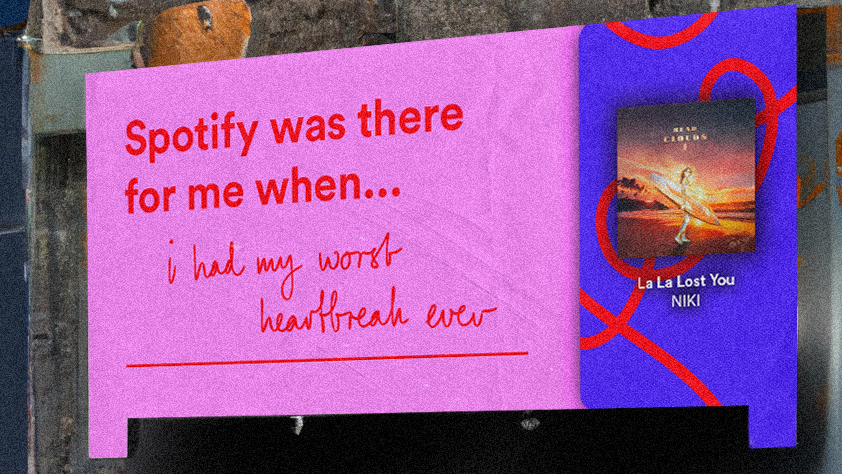 Spotify was there
for me when...
i had my worst
heartbreak ever
HEAD
CLOUDS
La La Lost You
NIKI